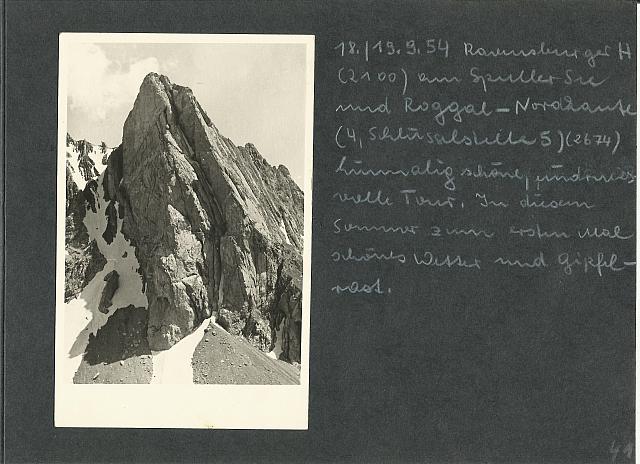 18./19.9.54 Ravensburger H
(2100) am Spuller See
und Roggal-Nordkante
(4, Schlüsselstelle 5) (2674)
schöne,
volle Tour. In diesem
Sommer zum ersten Mal
schönes Wetter und Gipfel-
rast.